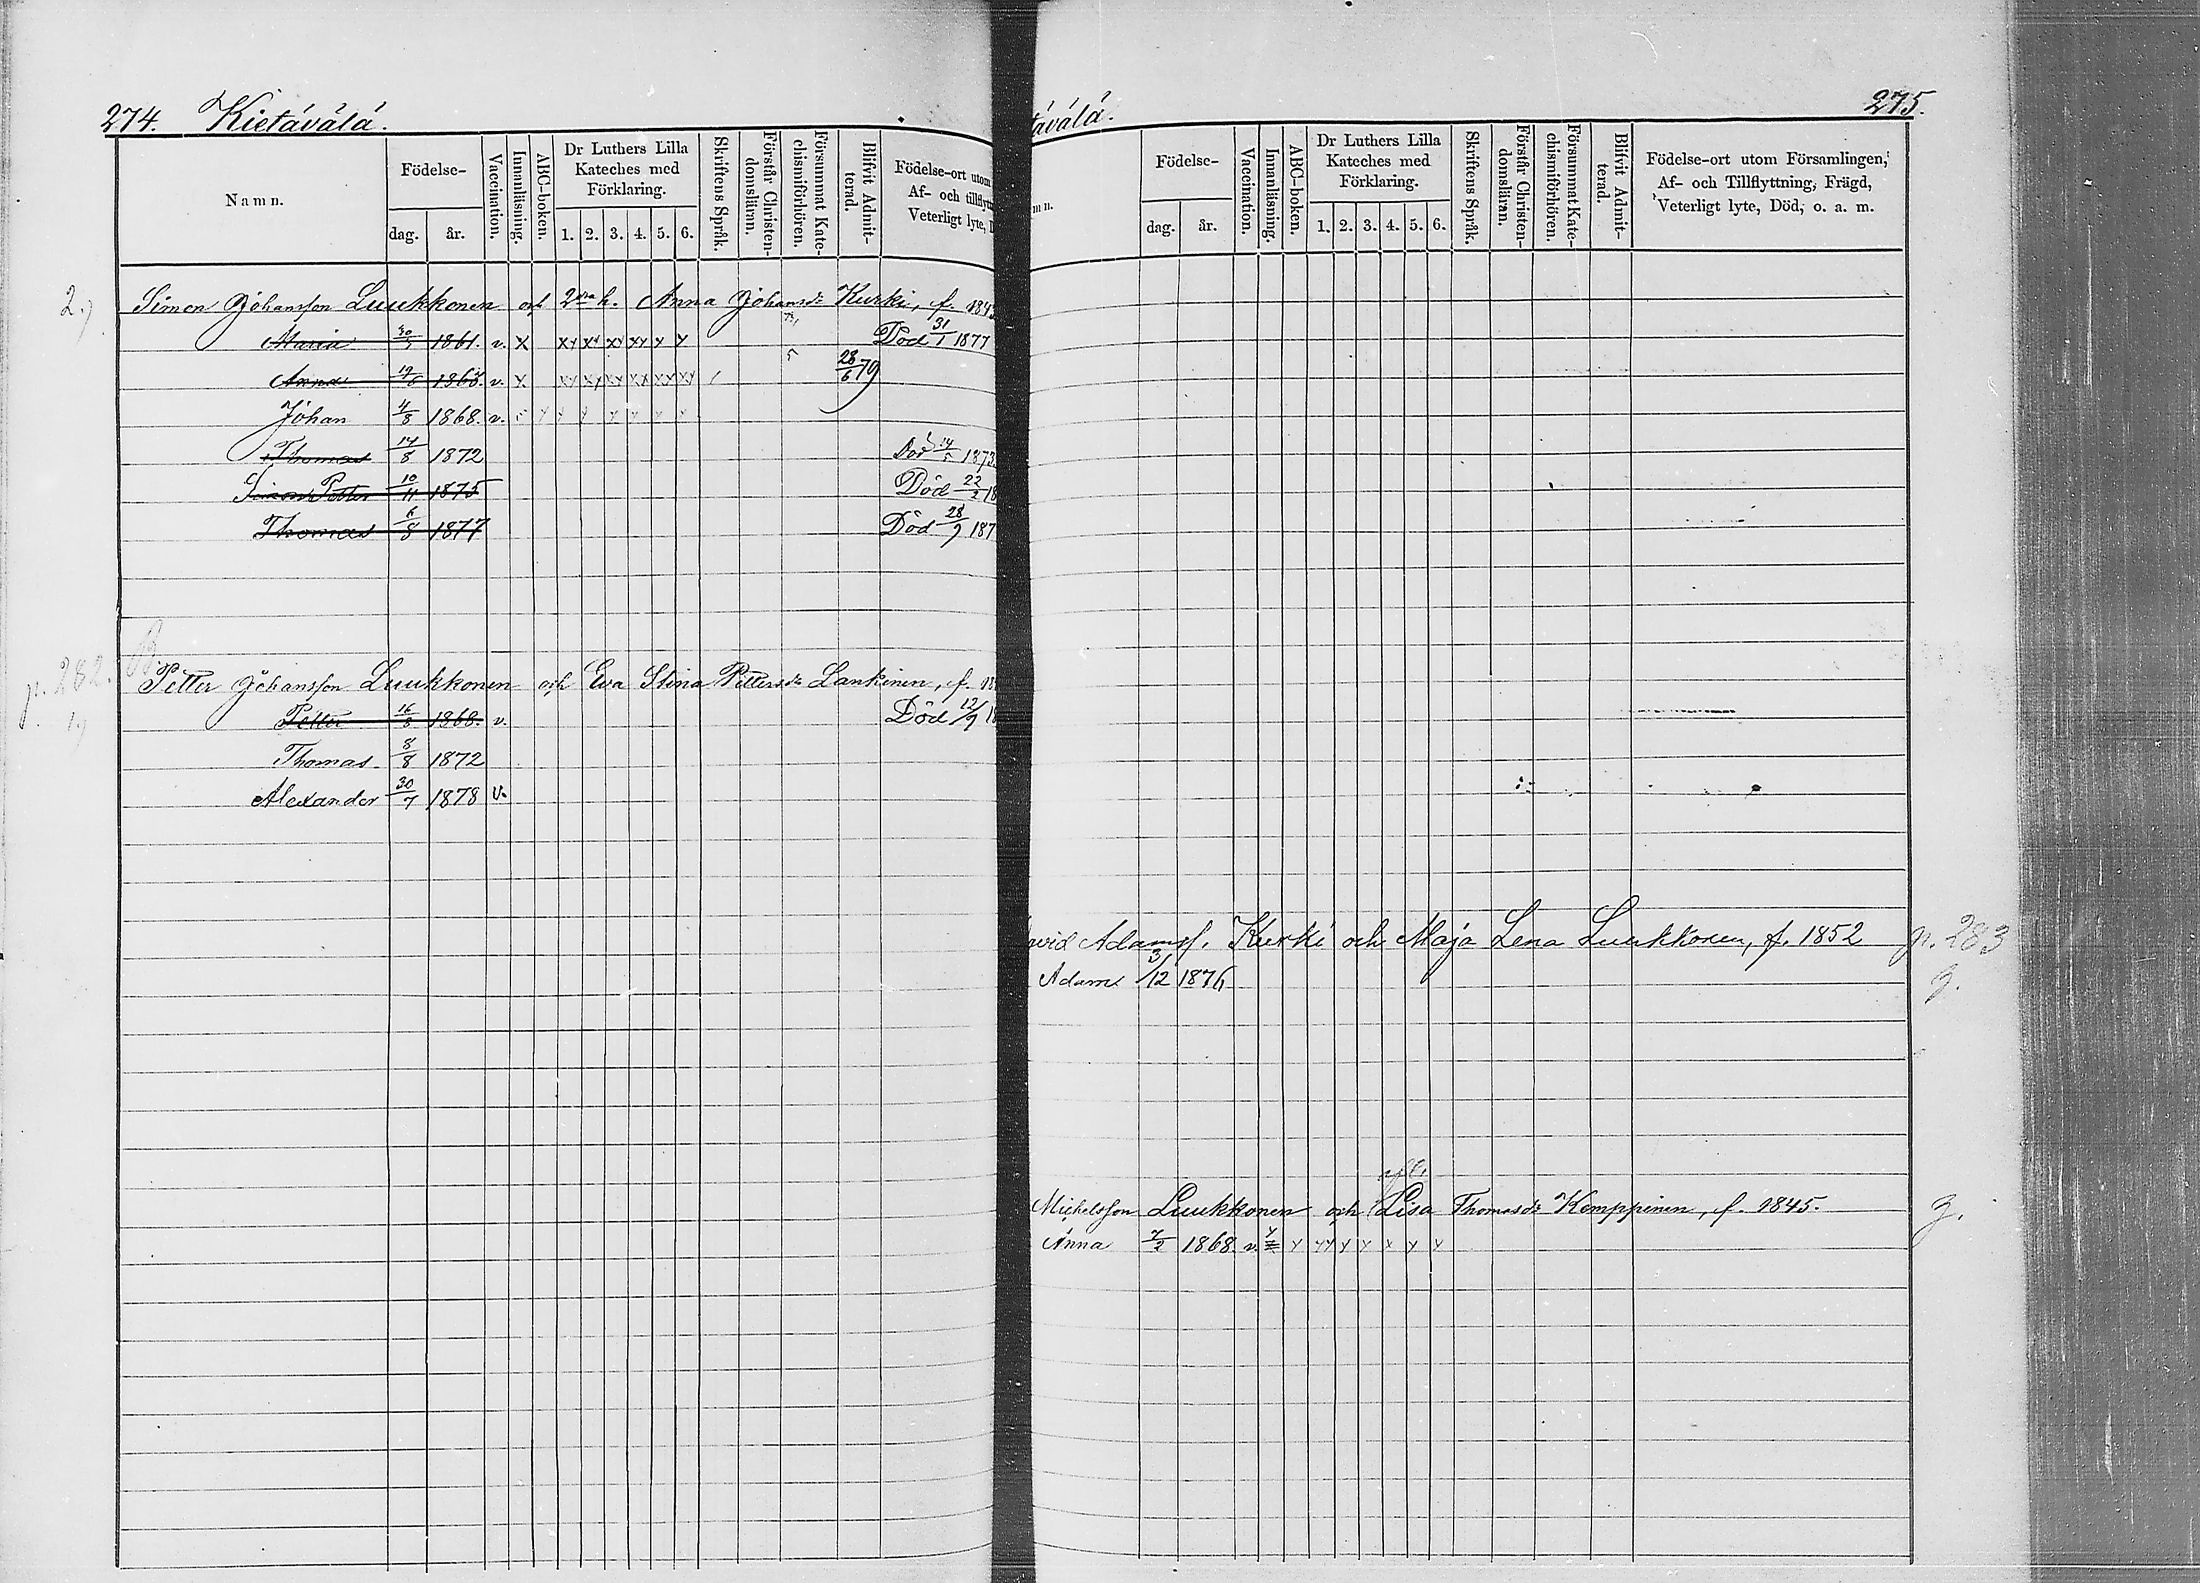 274. Kietävälä.
Namn. Födelse- dag. år. Vaccination. Innanläsning. ABC-boken. Dr Luthers Lilla Kateches med Förklaring. 1. 2. 3. 4. 5. 6. Skriftens Språk. Förstår Christendomsläran. Försummat Katechismiförhören. Blifvit Admitterad. Födelse-ort utom Af- och tillflytt Veterligt lyte,
Simon Johansson Luukkonen och 2dra h. Anna Johansdr Kurki, f. 184
Maria 1861. v. x xy xy xy xy y y Död 31/1 1877
Anna 1863. v. x xy xy xy xx xy xy 28/6 79
Johan 4/8 1868. v.
Thomas 14/8 1872 Död 14/5 1873
Simon Petter 10/11 1875 Död 22/2 18
Thomas 6/8 1877 Död 28/9 187
p. 282.
Petter Johansson Luukkonen och Eva Stina Pettersdr Lankinen, f. 18
Petter 16/8 1868. v. Död 12/9 18
Thomas 8/8 1872
Alexander 30/7 1878 v.
tävälä. 275.
mn. Födelse- dag. år. Vaccination. Innanläsning. ABC-boken. Dr Luthers Lilla Kateches med Förklaring. 1. 2. 3. 4. 5. 6. Skriftens Språk. Förstår Christendomsläran. Försummat Katechismiförhören. Blifvit Admitterad. Födelse-ort utom Församlingen, Af- och Tillflyttning, Frägd, Veterligt lyte, Död, o. a. m.
avid Adamsf. Kurki och Maja Lena Luukkonen, f. 1852 p. 283
Adam 3/12 1876 g.
Michelsson Luukkonen och Lisa Thomasdr Kemppinen, f. 1845. g.
Anna 7/2 1868 v.